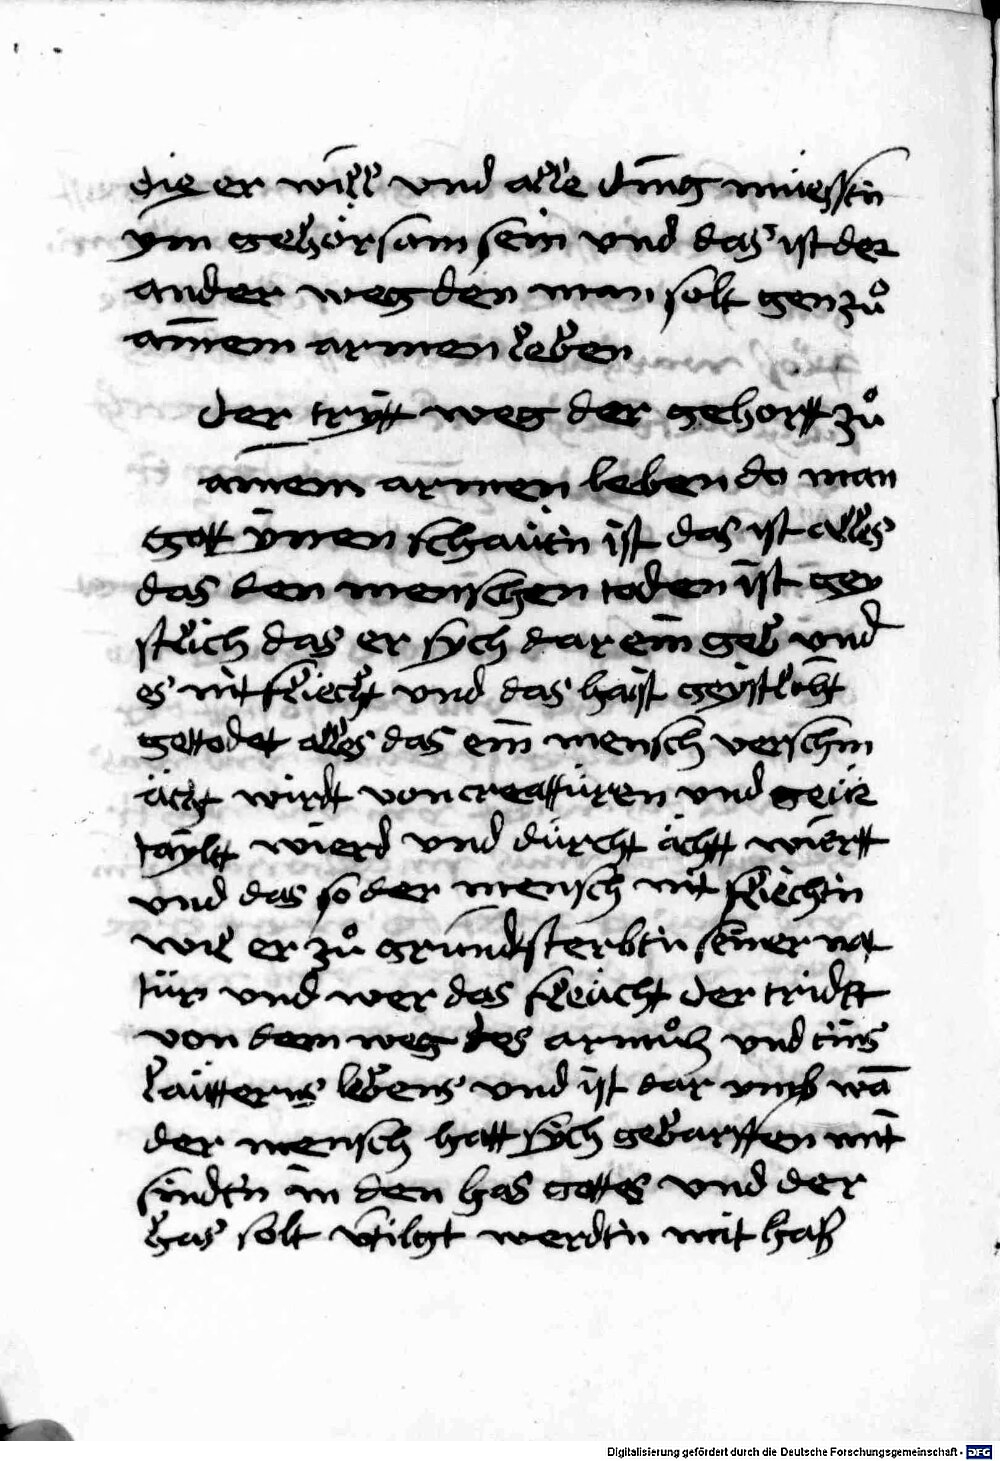 die er will vnd alle ding müessen
ym gehörsam sein vnd das ist der
ander weg den man solt gen zů
ainem armen leben
der trytt weg der gehortt zů
ainem armen leben do man
gott ynnen schauen ist das ist alles
das den menschen toden ist gey
stlich das er sych dar ein geb vnd
es nit fliecht vnd das haist geystlicht
gettodet alles das ein mensch verschm
ächt wirdt von creattüren vnd geür
taylt wierd vnd dürcht ächtt wiertt
vnd das so der mensch nit fliechen
wil er zů grund sterben seiner nat
tür vnd wer das fleücht der tridtt
von dem weg des armůtz vnd eins
lautterns lebens vnd ist dar vmb wā
der mensch hatt sych geworffen mit
sinden in den has gottes vnd der
has solt vtilgt werden mit haß
Digitalisierung gefördert durch die Deutsche Forschungsgemeinschaft - DFG